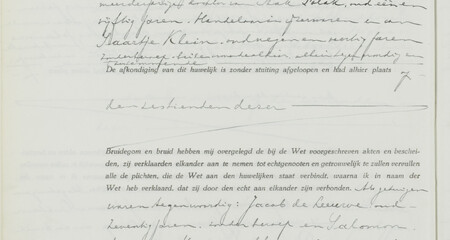 meerderjarige dochter van Izak Polak, oud een en
vijftig jaren, Handelaar in ijzerwaren en van
Saartje Klein, oud negen en veertig jaren
zonder beroep, beiden
De afkondiging van dit huwelijk is zonder stuiting afgeloopen en had alhier plaats
den zestienden dezer
Bruidegom en bruid hebben mij overgelegd de bij de Wet voorgeschreven akten en beschei-
den, zij verklaarden elkander aan te nemen tot echtgenooten en getrouwelijk te zullen vervullen
alle de plichten, die de Wet aan den huwelijken staat verbindt, waarna ik in naam der
Wet heb verklaard, dat zij door den echt aan elkander zijn verbonden. Als getuigen
waren tegenwoordig: Jacob de Leeuwe oud
zeventig jaren, zonder beroep en Salomon